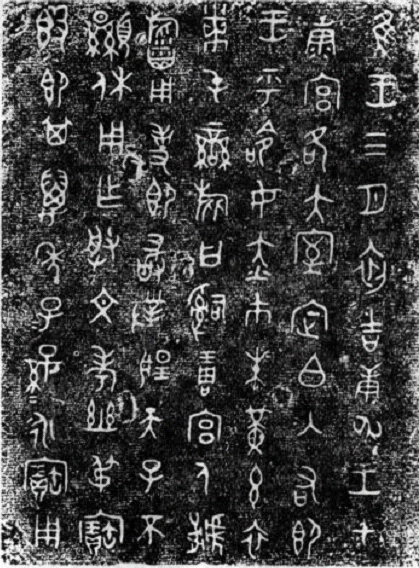 隹王三月初吉庚申王才
康宮各大室定白入右即
王乎命女赤巿朱黃玄衣
黹屯䜌旂曰𤔲琱宮人虢
旛用事即敢對揚天子不
顯休用乍朕文考幽弔寶
𣪘即其萬年子孫永寶用